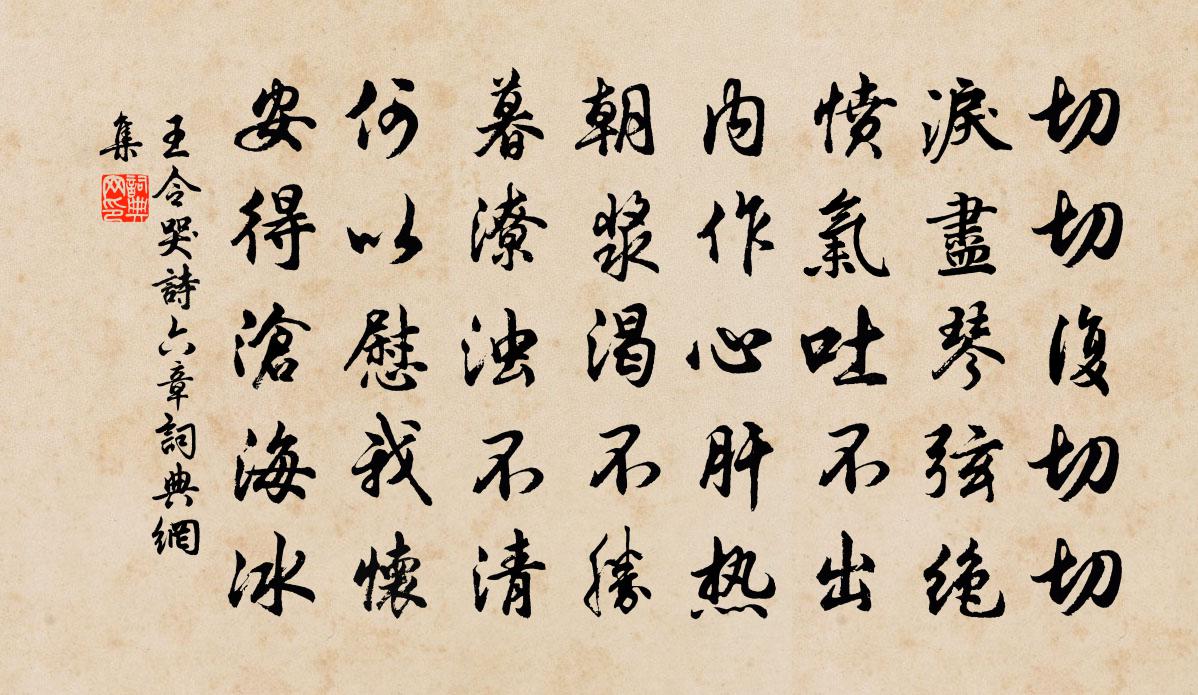 切切復切切
淚盡琴弦绝
憤氣吐不出
内作心肝热
朝漿渴不勝
暮潦浊不清
何以慰我懷
安得滄海冰
王令哭詩六章詞典網
集
詞典
网印